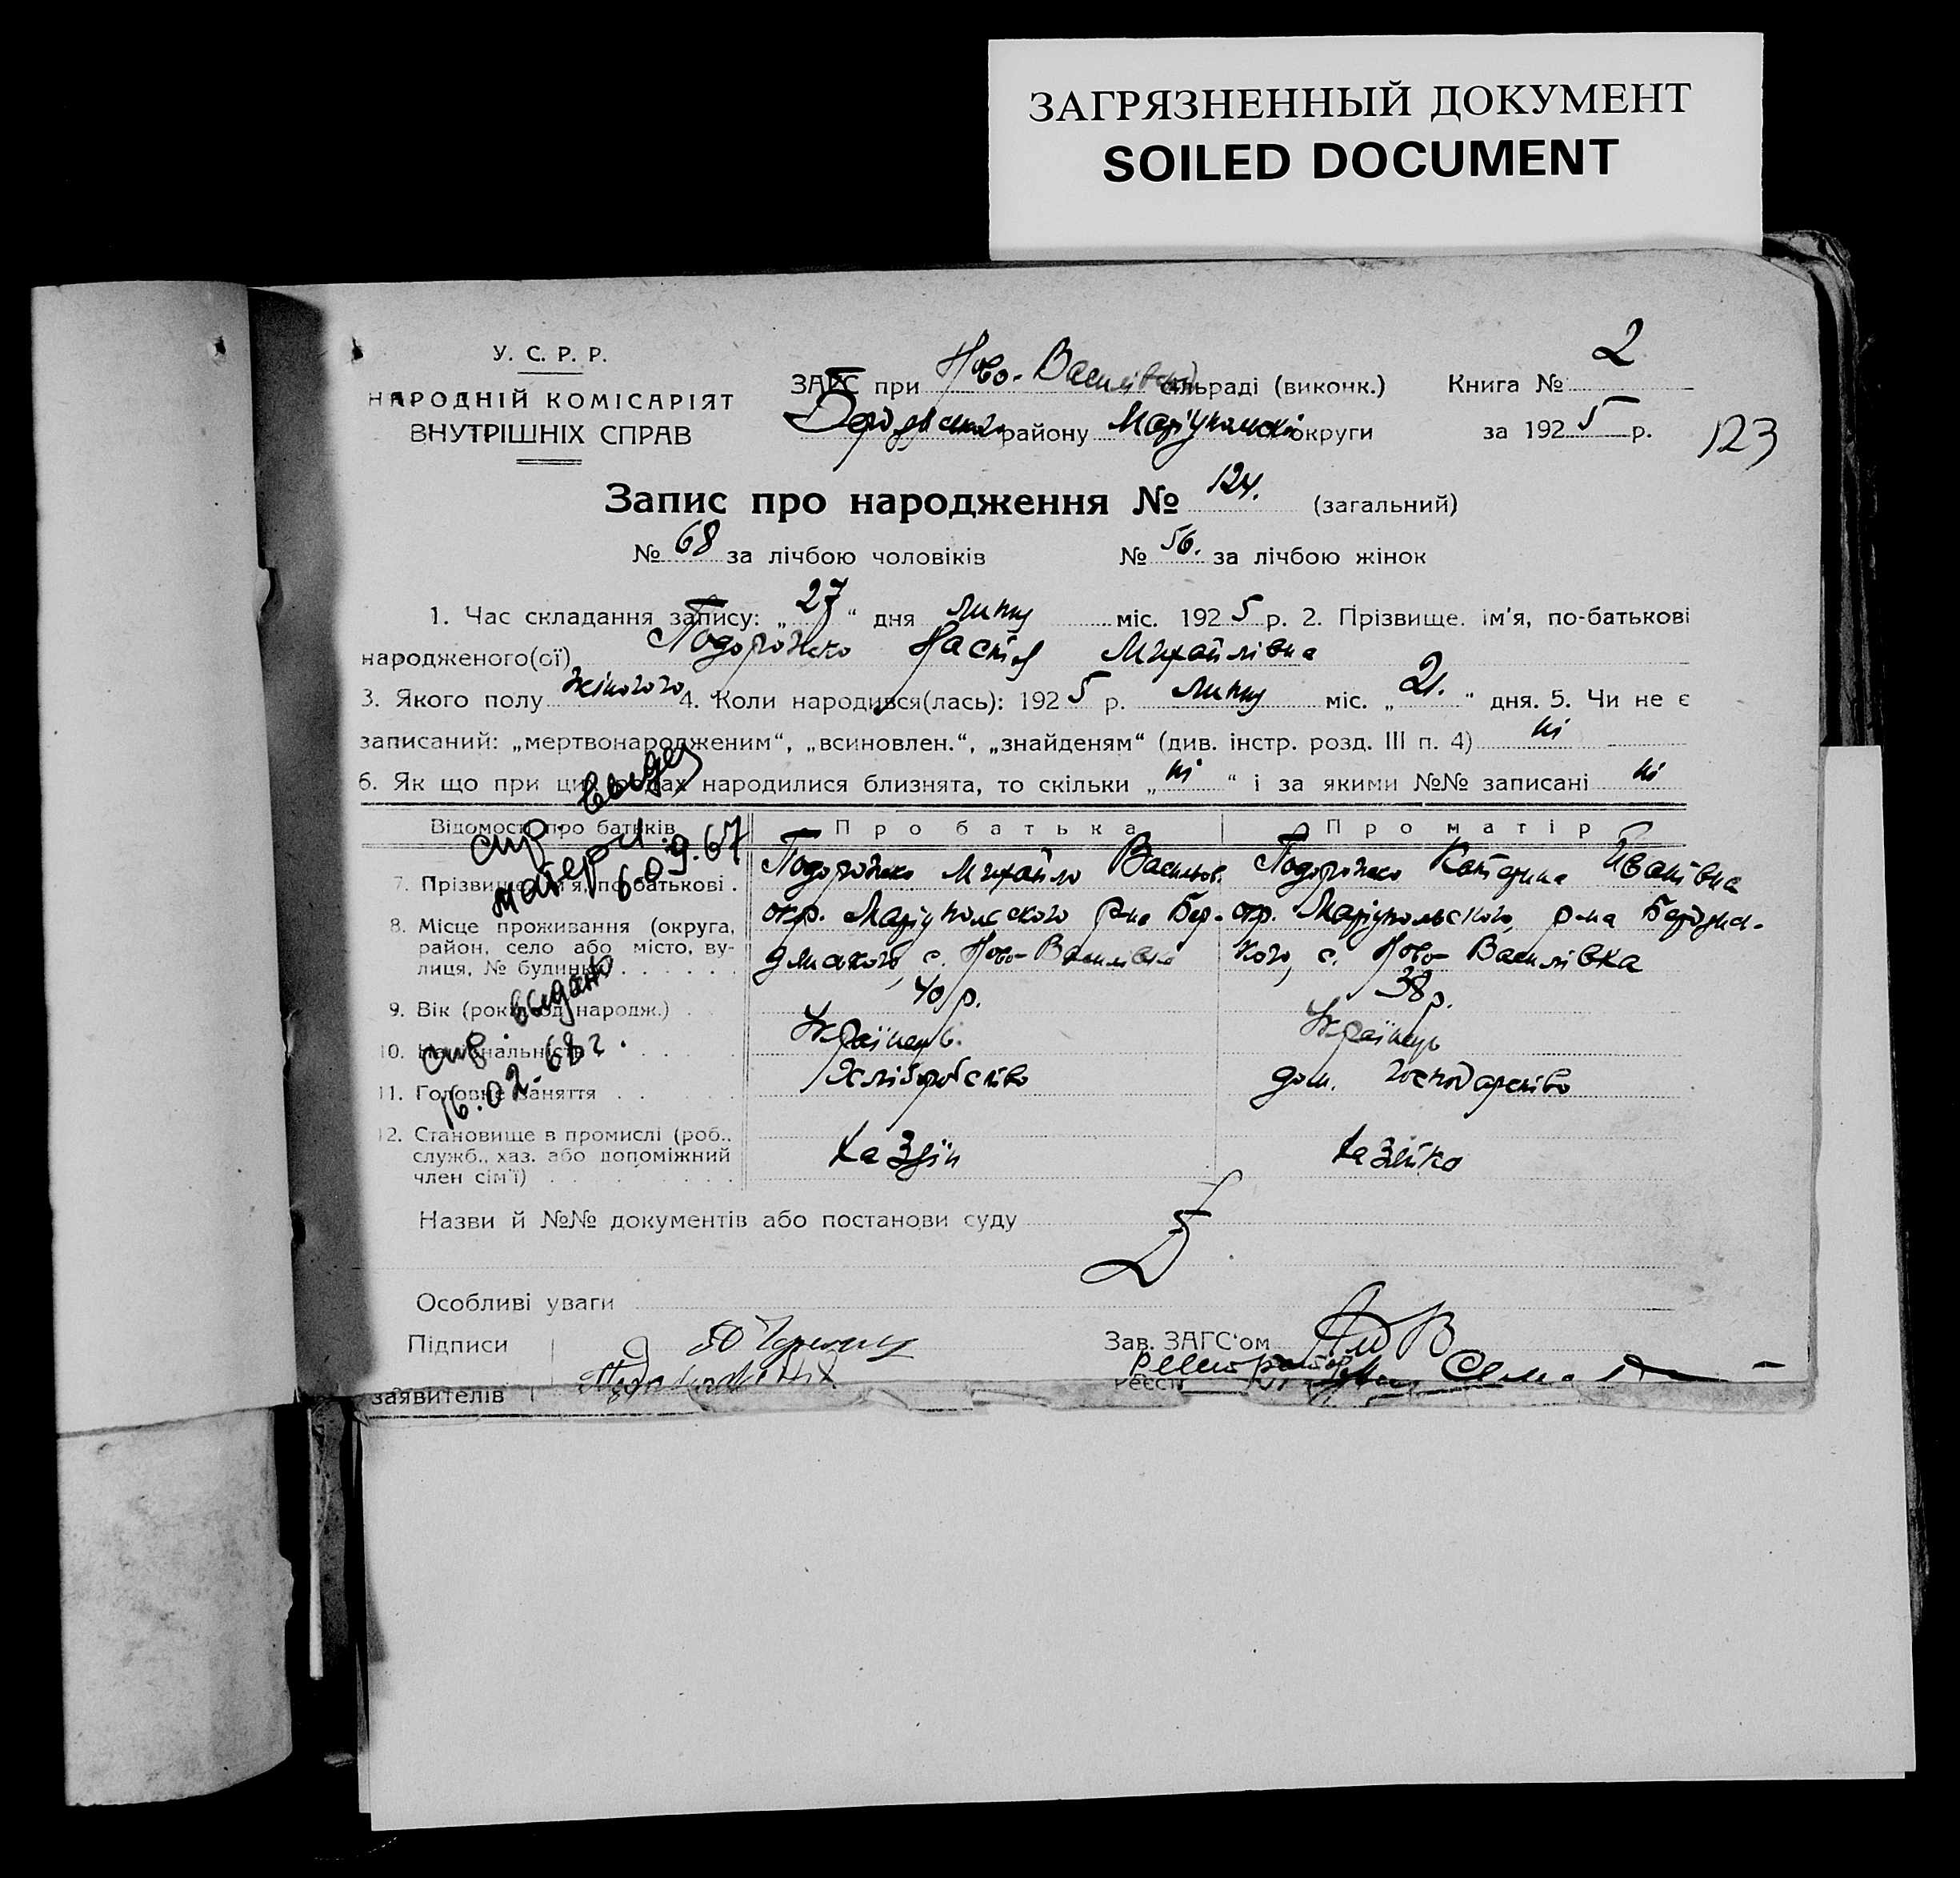 ЗАГРЯЗНЕННЫЙ ДОКУМЕНТ
SOILED DOCUMENT
У. С. Р. Р.
НАРОДНІЙ КОМІСАРІЯТ
ВНУТРІШНІХ СПРАВ
ЗАГС при Ново-Василівській сільраді (виконк.) Книга № 2
району Маріупольскі округи за 1925 р. 123
Запис про народження № 124. (загальний)
№ 68 за лічбою чоловіків № 56. за лічбою жінок
1. Час складання запису: „27“ дня липня міс. 1925 р. 2. Прізвище. ім'я, по-батькові
народженого(ої) Подорожко Настя Михайлівна
3. Якого полу жіночого 4. Коли народився(лась): 1925 р. липня міс. „21.“ дня. 5. Чи не є
записаний: „мертвонародженим“, „всиновлен.“, „знайденям“ (див. інстр. розд. III п. 4) ні
6. Як що при цих родах народилися близнята, то скільки „ні“ і за якими №№ записані ні
Відомості про батьків Про батька Про матір
7. Прізвище, ім'я, по-батькові. Подорожко Михайло Васильов. Подорожко Катерина Іванівна
8. Місце проживання (округа, окр. Маріупольского р-на Бер- окр. Маріупольского, р-на
район, село або місто, ву- дянского, с. Ново-Василівка кого, с. Ново-Василівка
лиця, № будинку)
9. Вік (рок од народж.) 40 р. 38 р.
10. Національність Українець. Українец
11. Головне заняття Хліборобство дом. господарство
12. Становище в промислі (роб.. хазяїн хазяйка
служб., хаз. або допоміжний
член сім'ї)
свр. выд.
матери.
6.09.67
свр. выдано
16.02.68 г.
Назви й №№ документів або постанови суду
Особливі уваги
Підписи Зав. ЗАГС'ом
заявителів Реєстр